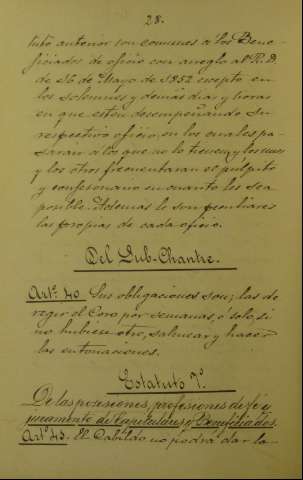 28.
tuto anterior son comunes a los Bene-
ficiados de oficio con arreglo al R. D.
de 16 de Mayo de 1852 escepto en
los solemnes y demás dias y horas
en que estén desempeñando su
respectivo oficio, en los cuales pa-
sarán á los que no lo tienen, y los unos
y los otros frecuentaran el púlpito
y confesonario en cuanto les sea
posible. Ademas le son peculiares
las propias de cada oficio.
Del Sub-Chantre.
Artº. 40 Sus obligaciones son; las de
regir el Coro por semanas, ó solo, si
no hubiese otro, salmear y hacer
las entonaciones.
Estatuto 7º
De las posesiones, profesiones de fé y
juramento de Capitulares y Beneficiados.
Artº 43. El Cabildo no podrá dar la